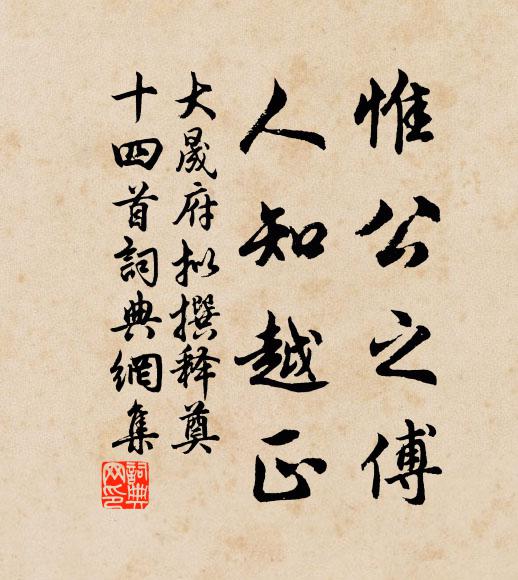 惟公之傅
人知越正
大晟府拟撰释奠
十四首詞典網集
詞典网印